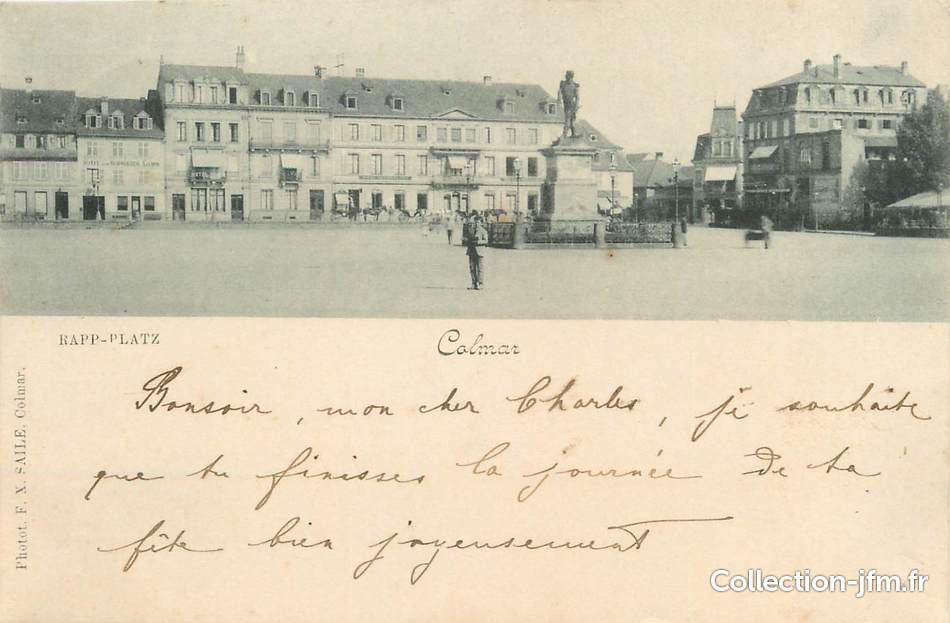 RAPP-PLATZ
Colmar
Photot. F. X. SAILE, Colmar.
Bonsoir, mon cher Charles, je souhaite
que tu finisses la journée de ta
fête bien joyeusement
Collection-jfm.fr